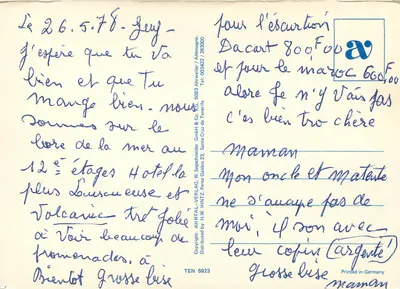 Le 26.5.78. Jeuf-
j'espère que tu va
bien et que tu
mange bien. nous
sommes sur le
bore de la mer au
12è étages Hotel le
plus Luxueuse et
Volcanic tret jolie
à voir beaucoup de
promenades. à
Bientot Grosse bise
Copyright: AVIRTAL-VERLAG, B. Siepenkreider GmbH & Co. KG, 5583 Alsweiler / Allemagne
Tel. 0034/22 280000
Distributed by H.W. HINTZ, Pérez Galdós 23, Santa Cruz de Tenerife
TEN 5923
pour l'éscurtion
Dacart 800F00
et pour le maroc 600F00
alore Je n'y Vais pas
c'es bien tro chère
av
maman
mon oncle et matente
ne s'anuye pas de
moi, il son avec
leur copin (argenté)
Grosse bise
maman
Printed in Germany